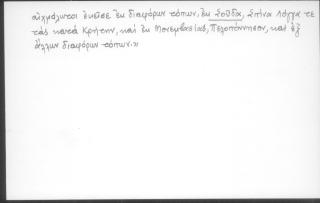 αἰχμάλωτοι ἐκεῖσε ἐκ διαφόρων τόπων, ἐκ Σούδα, Σπίνα Λόγγα τε
τὰς κατὰ Κρήτην, καὶ ἐκ Μονεμβασίας, Πελοπόννησον, καὶ ἐξ
ἄλλων διαφόρων τόπων.»